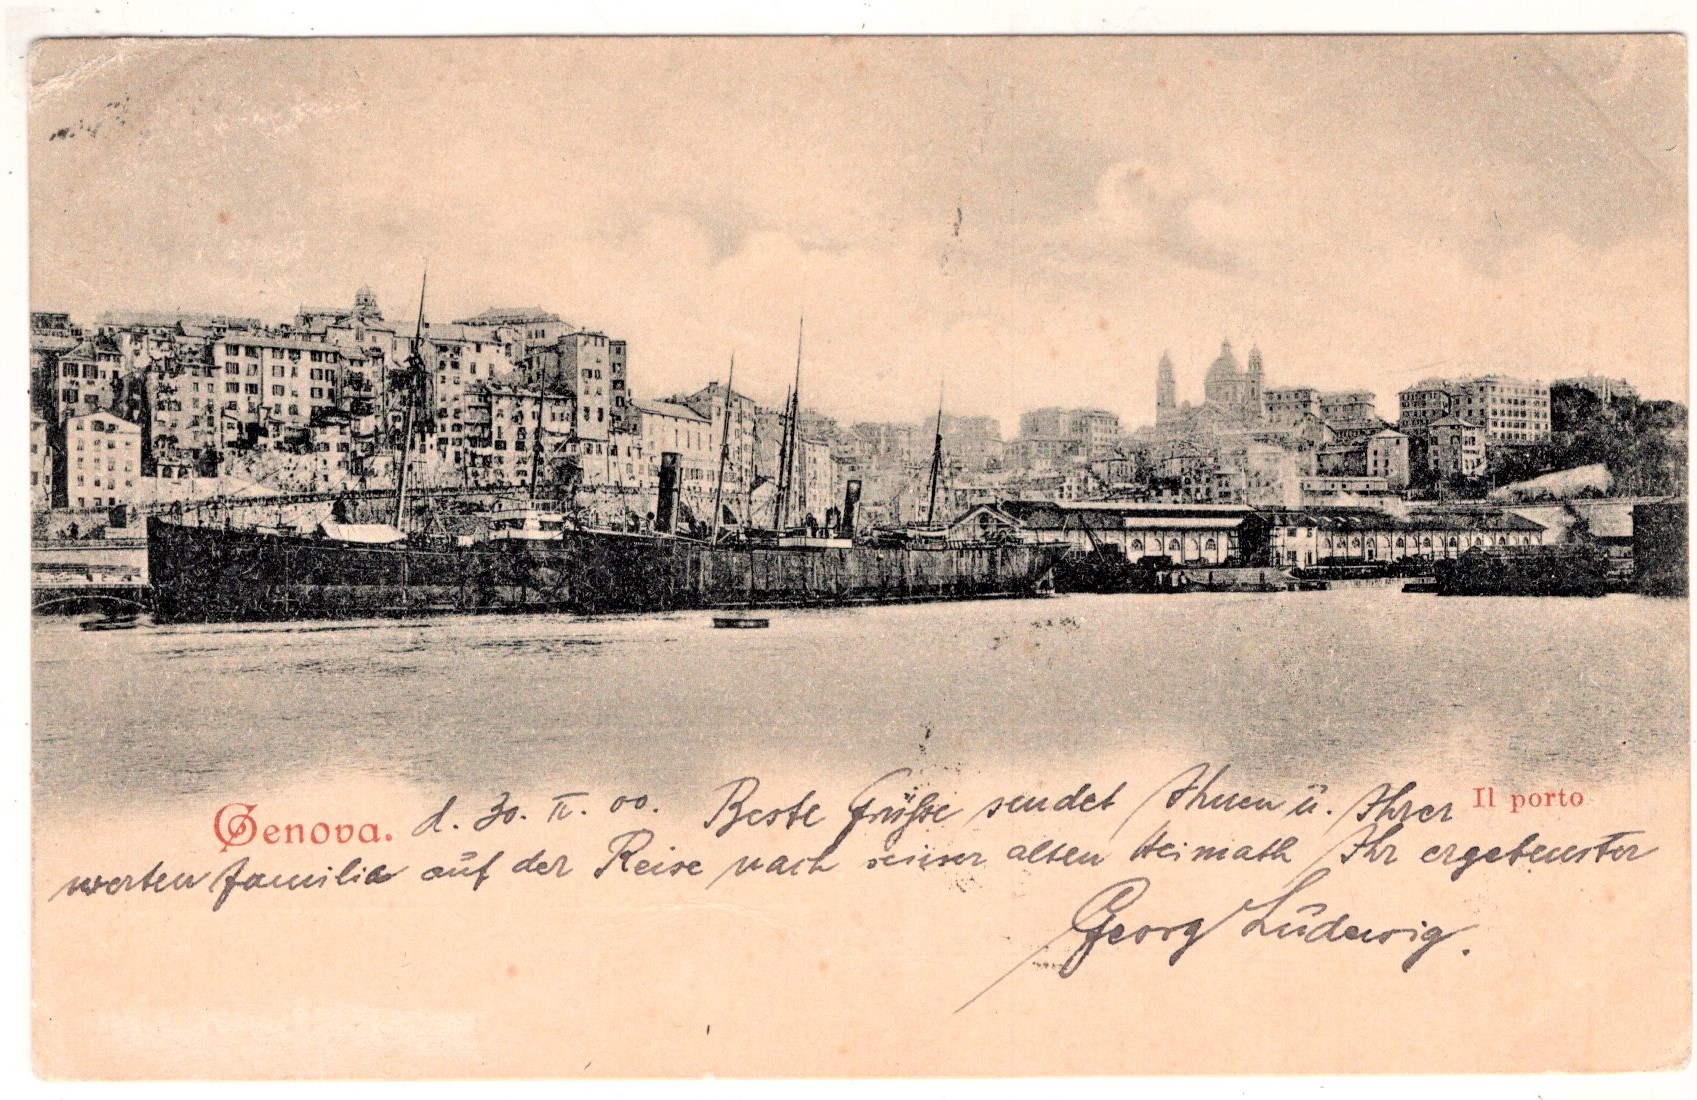 Genova. d. 30. II. 00. Beste Grüße sendet Ihnen u. Ihrer Il porto
werten Familie auf der Reise nach seiner alten Heimath Ihr ergebenster
Georg Ludewig.